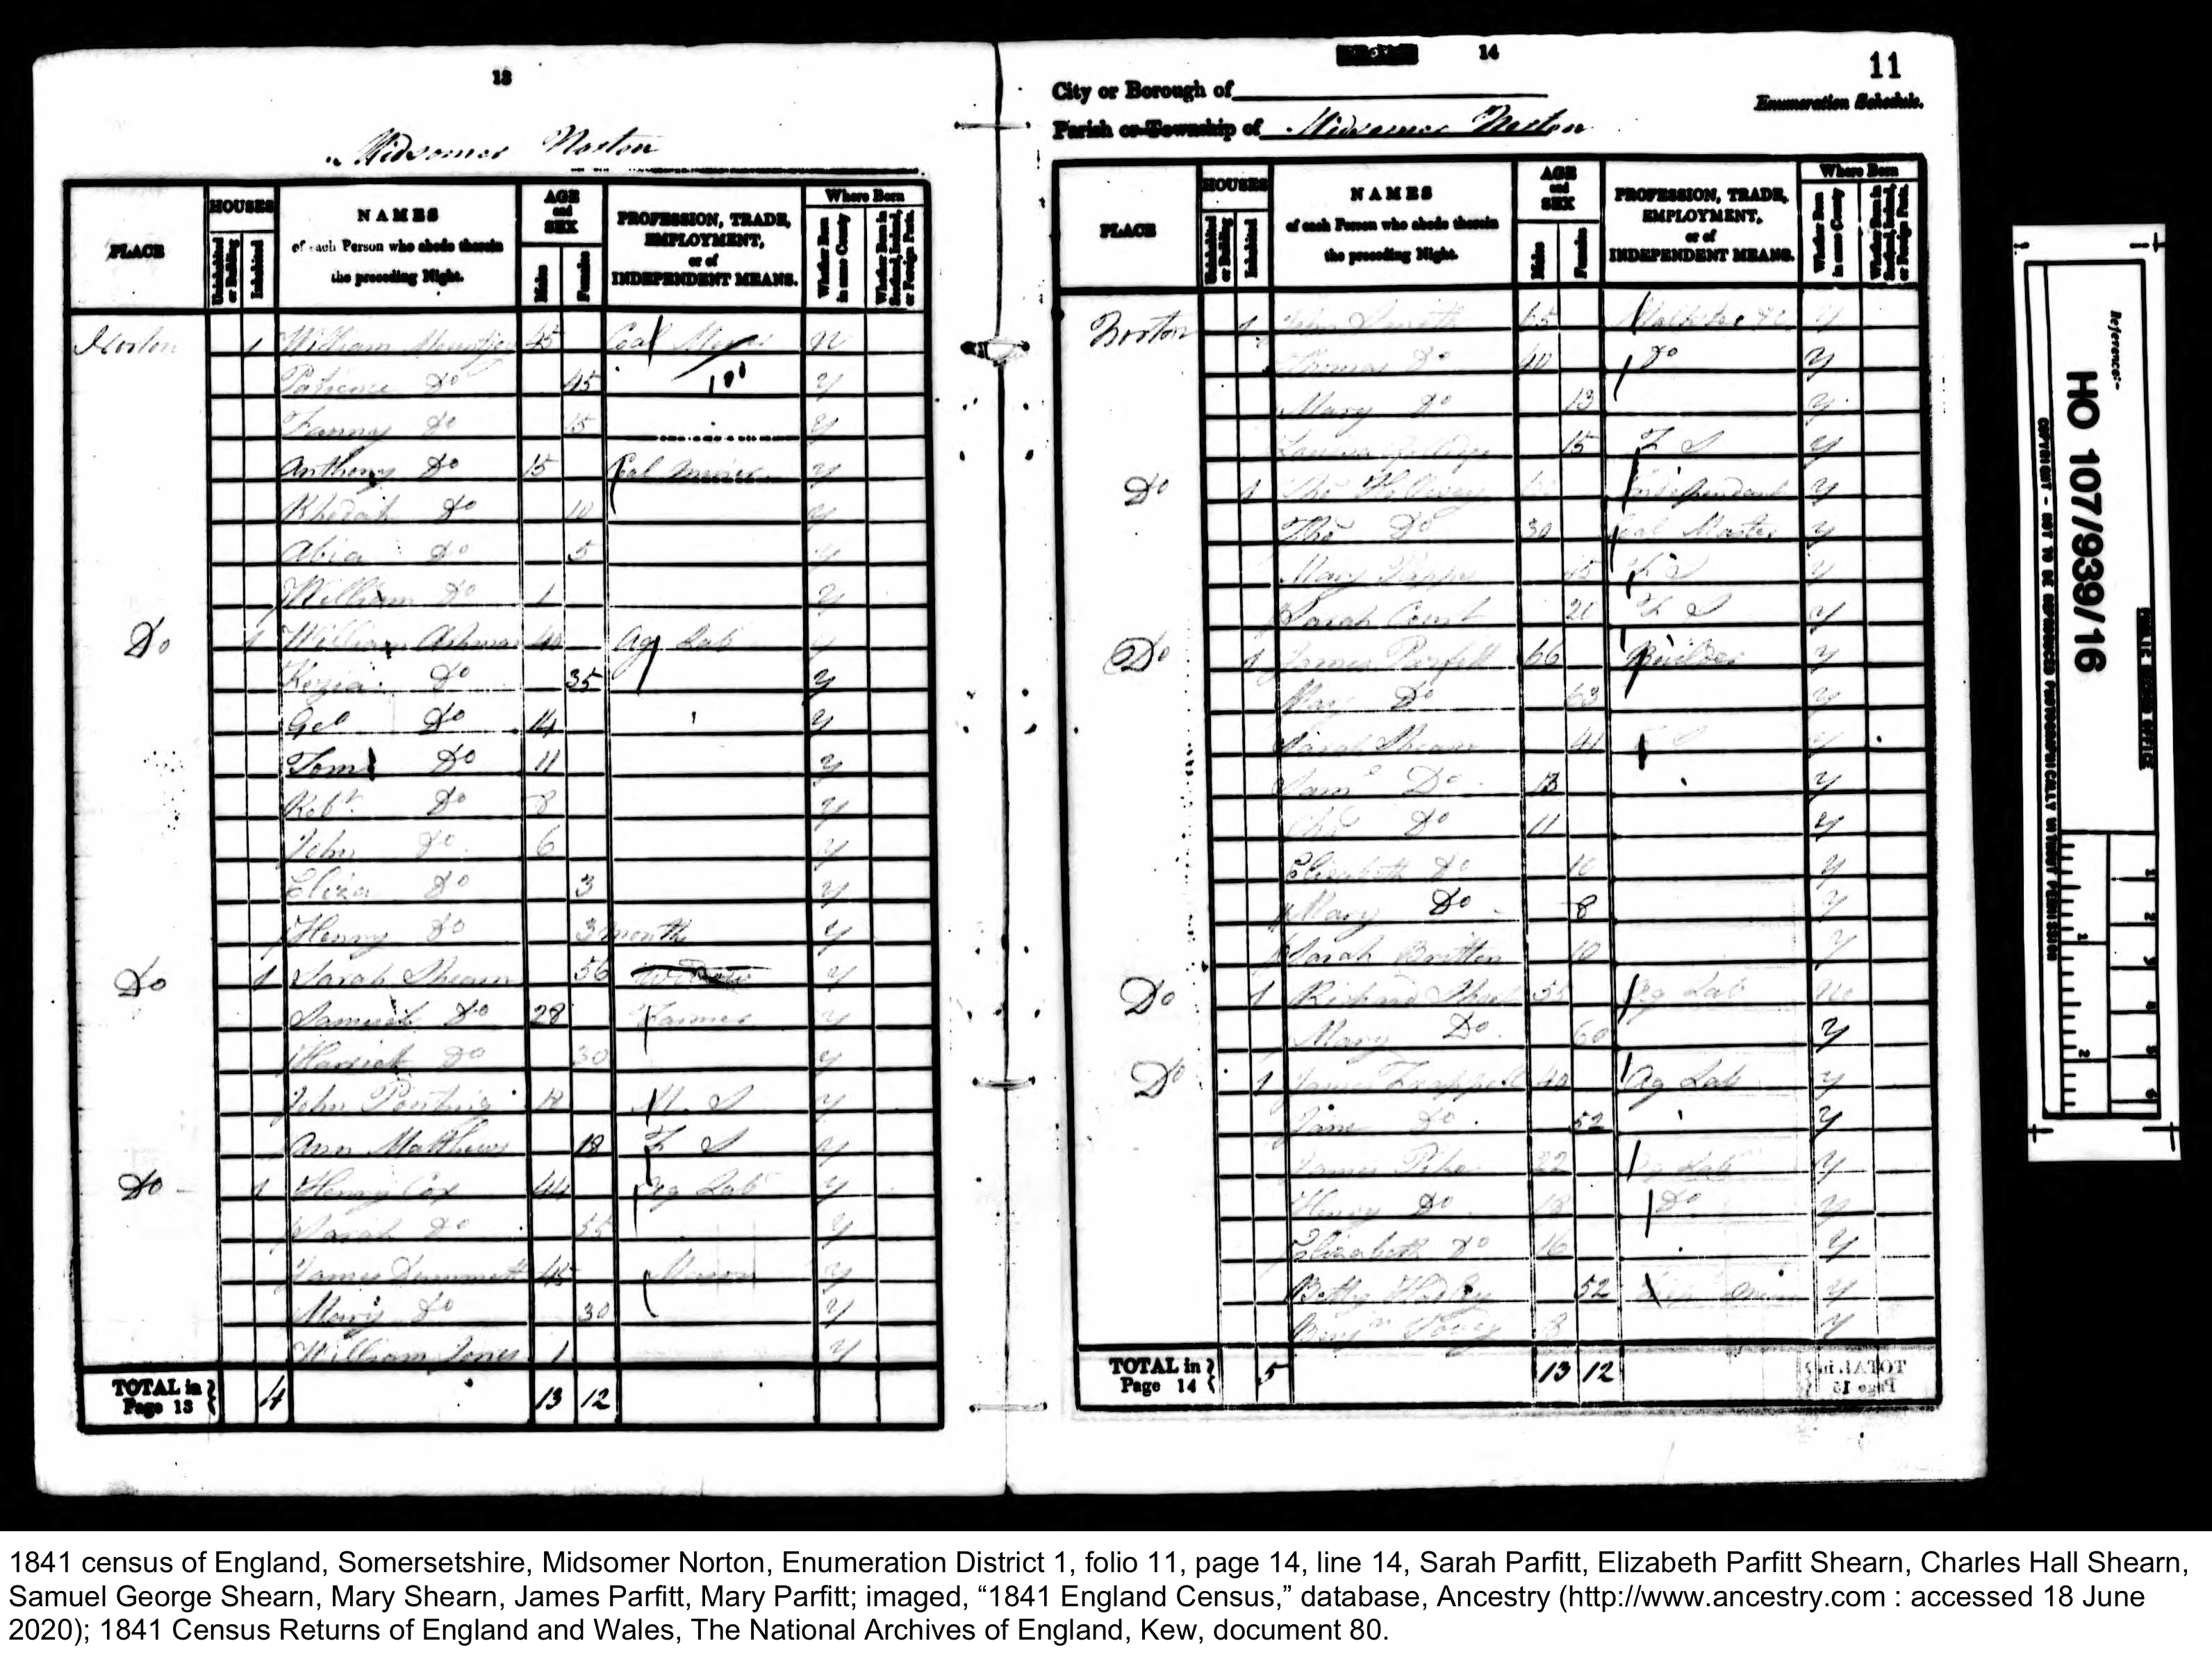 13
Midsomer Norton
PLACE
HOUSES
Uninhabited or Building
Inhabited
NAMES of each Person who abode therein the preceding Night.
AGE and SEX
Males
Females
PROFESSION, TRADE, EMPLOYMENT, or of INDEPENDENT MEANS.
Where Born
Whether Born in same County
Whether Born in Scotland, Ireland, or Foreign Parts.
Norton 1 William 45 Coal N
Patience Do 45 Y
Fanny Do 15 Y
Anthony Do 15 Coal Miner Y
Do 10 Y
Abia Do 5 Y
William Do 1 Y
Do 1 William Ashman 40 Ag Lab Y
Kezia Do 35 Y
Geo Do 14 Y
Tom Do 11 Y
Robt Do 8 Y
John Do 6 Y
Eliza Do 3 Y
Henry Do 3 month Y
Do 1 Sarah Shearn 56 Y
Samuel Do 28 Farmer Y
Harriet Do 30 Y
John Ponting M. S Y
Ann Matthews 18 F S Y
Do 1 Henry Cox 44 Ag Lab Y
Sarah Do 55 Y
James 45 Mason Y
Mary Do 30 Y
William Jones 1 Y
TOTAL in Page 13 4 13 12
14
11
City or Borough of
Enumeration Schedule.
Parish or Township of Midsomer Norton
PLACE
HOUSES
Uninhabited or Building
Inhabited
NAMES of each Person who abode therein the preceding Night.
AGE and SEX
Males
Females
PROFESSION, TRADE, EMPLOYMENT, or of INDEPENDENT MEANS.
Where Born
Whether Born in same County
Whether Born in Scotland, Ireland, or Foreign Parts.
Norton 1 John Smith 65 Y
Thomas Do 40 Do Y
Mary Do 13 Y
15 F S Y
Do 1 Thos Independent Y
Thos Do 30 Coal Master Y
Mary 15 F S Y
Sarah Court 20 F S Y
Do 1 James Parfitt 66 Builder Y
Mary Do 63 Y
Sarah Shearn 41 Y
Sam Do 13 Y
Chs Do 11 Y
Elizabeth Do 10 Y
Mary Do 8 Y
Sarah Britten 10 Y
Do 1 Richard Ag Lab No
Mary Do 60 Y
Do 1 James 40 Ag Lab Y
Jane Do 52 Y
James 22 Ag Lab Y
Henry Do 18 Do Y
Elizabeth Do 16 Y
Betty 52 Y
Benjn 8 Y
TOTAL in Page 14 5 13 12
Reference:-
HO 107/939/16
PUBLIC RECORD OFFICE
COPYRIGHT - NOT TO BE REPRODUCED PHOTOGRAPHICALLY WITHOUT PERMISSION
1841 census of England, Somersetshire, Midsomer Norton, Enumeration District 1, folio 11, page 14, line 14, Sarah Parfitt, Elizabeth Parfitt Shearn, Charles Hall Shearn,
Samuel George Shearn, Mary Shearn, James Parfitt, Mary Parfitt; imaged, “1841 England Census,” database, Ancestry (http://www.ancestry.com : accessed 18 June
2020); 1841 Census Returns of England and Wales, The National Archives of England, Kew, document 80.